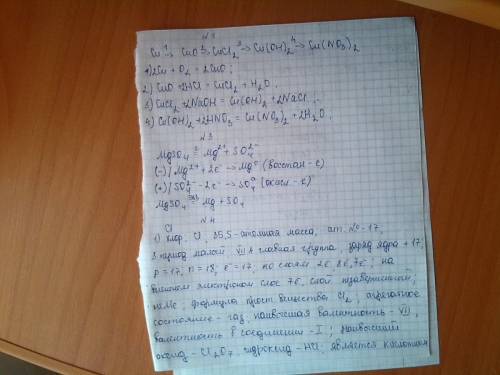 Cu ¹→ CuO ²→ CuCl₂ ³→ Cu(OH)₂ ⁴→ Cu(NO₃)₂
1) 2Cu + O₂ = 2CuO;
2) CuO + 2HCl = CuCl₂ + H₂O.
3) CuCl₂ + 2NaOH = Cu(OH)₂ + 2NaCl.
4) Cu(OH)₂ + 2HNO₃ = Cu(NO₃)₂ + 2H₂O.
№3
MgSO₄ = Mg²⁺ + SO₄²⁻
(-) | Mg²⁺ + 2e → Mg⁰ (восстан-е)
(+) | SO₄²⁻ - 2e → SO₄⁰ (окисл-е)
MgSO₄ = Mg + SO₄
№4
Cl
1) хлор. Cl, 35,5-атомная масса, ат. №-17,
3 период малый VII A главная группа, заряд ядра +17;
p=17; n=18; e=17; по слоям 2e 8e 7e; на
внешнем электронном слое 7e, слой незавершённый;
неМе, формула прост. вещества Cl₂, агрегатное
состояние-газ; наивысшая валентность-VII,
валентность в соединении-I; наивысший
оксид-Cl₂O₇ гидроксид-HCl является кислотным